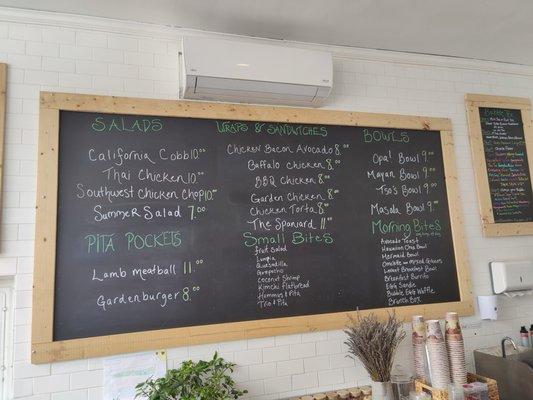 SALADS
California Cobb 10.00
Thai Chicken 10.00
Southwest Chicken Chop 10.00
Summer Salad 7.00
PITA POCKETS
Lamb meatball 11.00
Gardenburger 8.00
WRAPS & SANDWICHES
Chicken Bacon Avocado 8.00
Buffalo Chicken 8.00
BBQ Chicken 8.00
Garden Chicken 8.00
Chicken Torta 8.00
The Spaniard 11.00
Small Bites
fruit Salad
Lumpia
Quesadilla
Gazpacho
coconut Shrimp
Kimchi flatbread
Hummus & Pita
Trio & Pita
BOWLS
Opa! Bowl 9.00
Mayan Bowl 9.00
Tso's Bowl 9.00
Masala Bowl 9.00
Morning Bites
Avocado Toast
Hawaiian Chia Bowl
Mermaid Bowl
Omelette w/ Mixed Greens
Loaded Breakfast Bowl
Breakfast Burrito
Egg Sando
Bubble Egg Waffle
Brunch Box